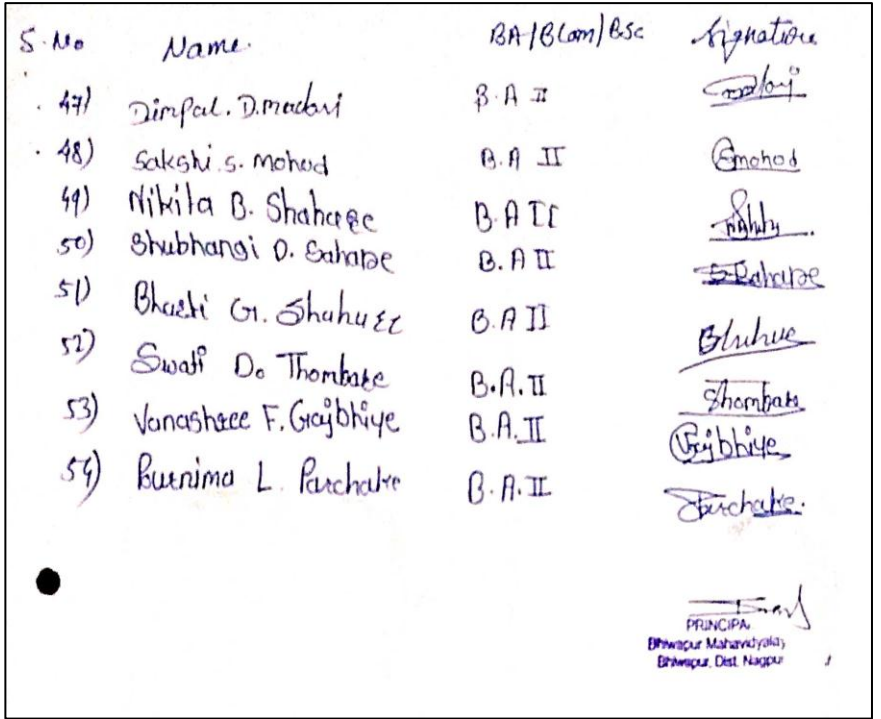 S.No Name. BA/BCom/BSc Signature
47) Dimpal. D. madavi B.A II
48) Sakshi. S. Mohod B.A II Smohod
49) Nikita B. Shahare B.A II
50) Shubhangi D. Saharae B.A II S Raharae
51) Bharti G. Shahare B.A II
52) Swati D. Thombare B.A. II Thombare
53) Vanashree F. Gajbhiye B.A. II Gajbhiye
54) Purnima L. Parchake B.A. II Parchake.
PRINCIPA
Bhiwapur Mahavidyalay
Bhiwapur, Dist. Nagpur